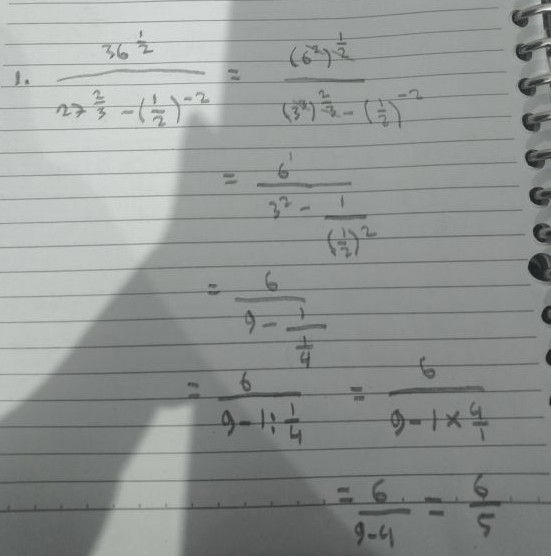 1. 36^(1/2) / (27^(2/3) - (1/2)^(-2)) = (6^2)^(1/2) / ((3^3)^(2/3) - (1/2)^(-2))
= 6^1 / (3^2 - 1/(1/2)^2)
= 6 / (9 - 1/(1/4))
= 6 / (9 - 1 : 1/4) = 6 / (9 - 1 × 4/1)
= 6 / (9-4) = 6/5